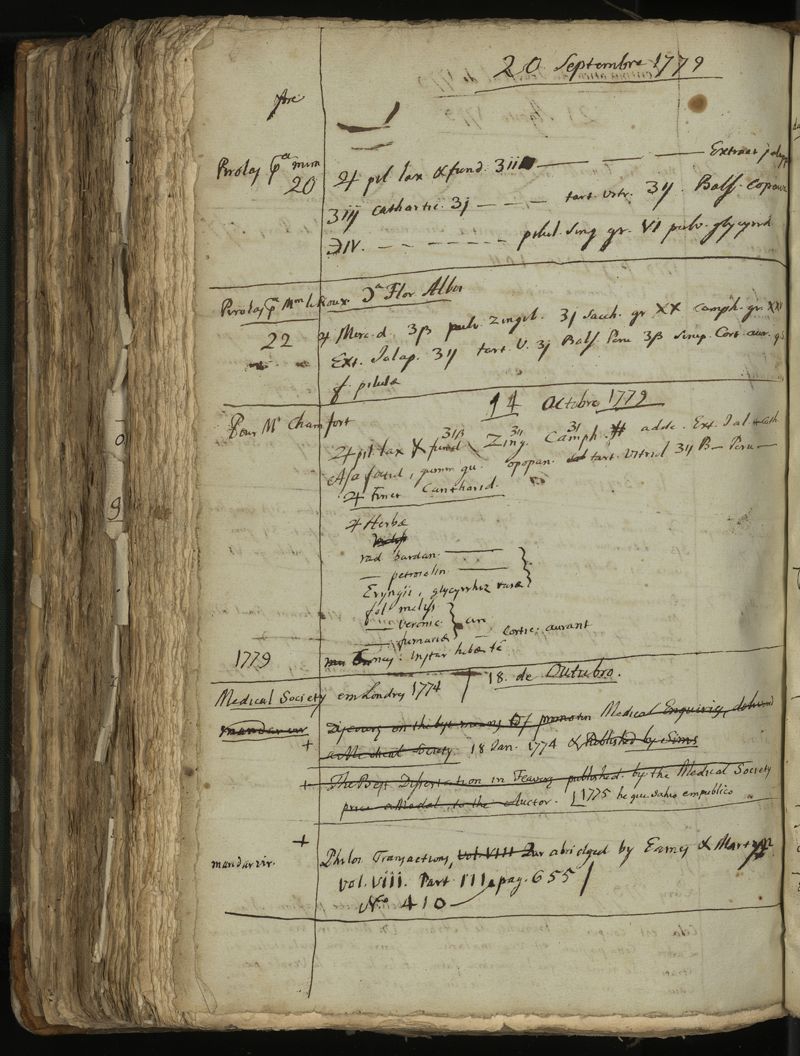 20 Septembre 1779
Pirolas pª mim
20
♃ pil lax & fund. ʒiii — — — Extract jalap
ʒiij cathartic. ʒj — — — tart. vitr. ʒij. Bals. Copaiv
℈IV. — — — — — pilul. sing gr. VI pulv. glycyrrh
Pirolas pª Mm le Roux Dª Flor Albus
22
♃ Merc. d. ʒβ pulv. Zingib. ʒj Sacch. gr XX camph. gr. XX
Ext. Jalap. ʒij tart V. ʒj Bals Peru ʒβ Sirup. Cort. aur. qs
f. pilulæ
14 Octobre 1779
Pour Mr Chamfort
♃ pil lax & fund ʒiβ Zing. ʒij Camph. ʒi adde. Ext. Jal + cath
Asa foetid, gumm gu. opopan. tart. vitriol ʒij B— Peru—
♃ Tinct Cantharid.
♃ Herbæ
rad bardan — —
— petroselin — —
Eryngii, glycyrrhiz rasæ
fol melis
— veronic
— fumariæ } an — Cortic: aurant
1779
instar
18. de Outubro.
Medical Society em Londres 1774
mandar vir
Discours on the best means of promotin Medical Enquiries, deliverd
+ a Medical Society. 18 Jan. 1774 & Published by Sims
+ The Best Dissertation in Feavers published by the Medical Society
price a Medal, to the Auctor. [1775 he que sahio em publico
+
mandar vir.
Philos Transactions, Vol. VIII abridged by Eames & Martyn
vol. viii. Part III, pag. 655
No. 410 —